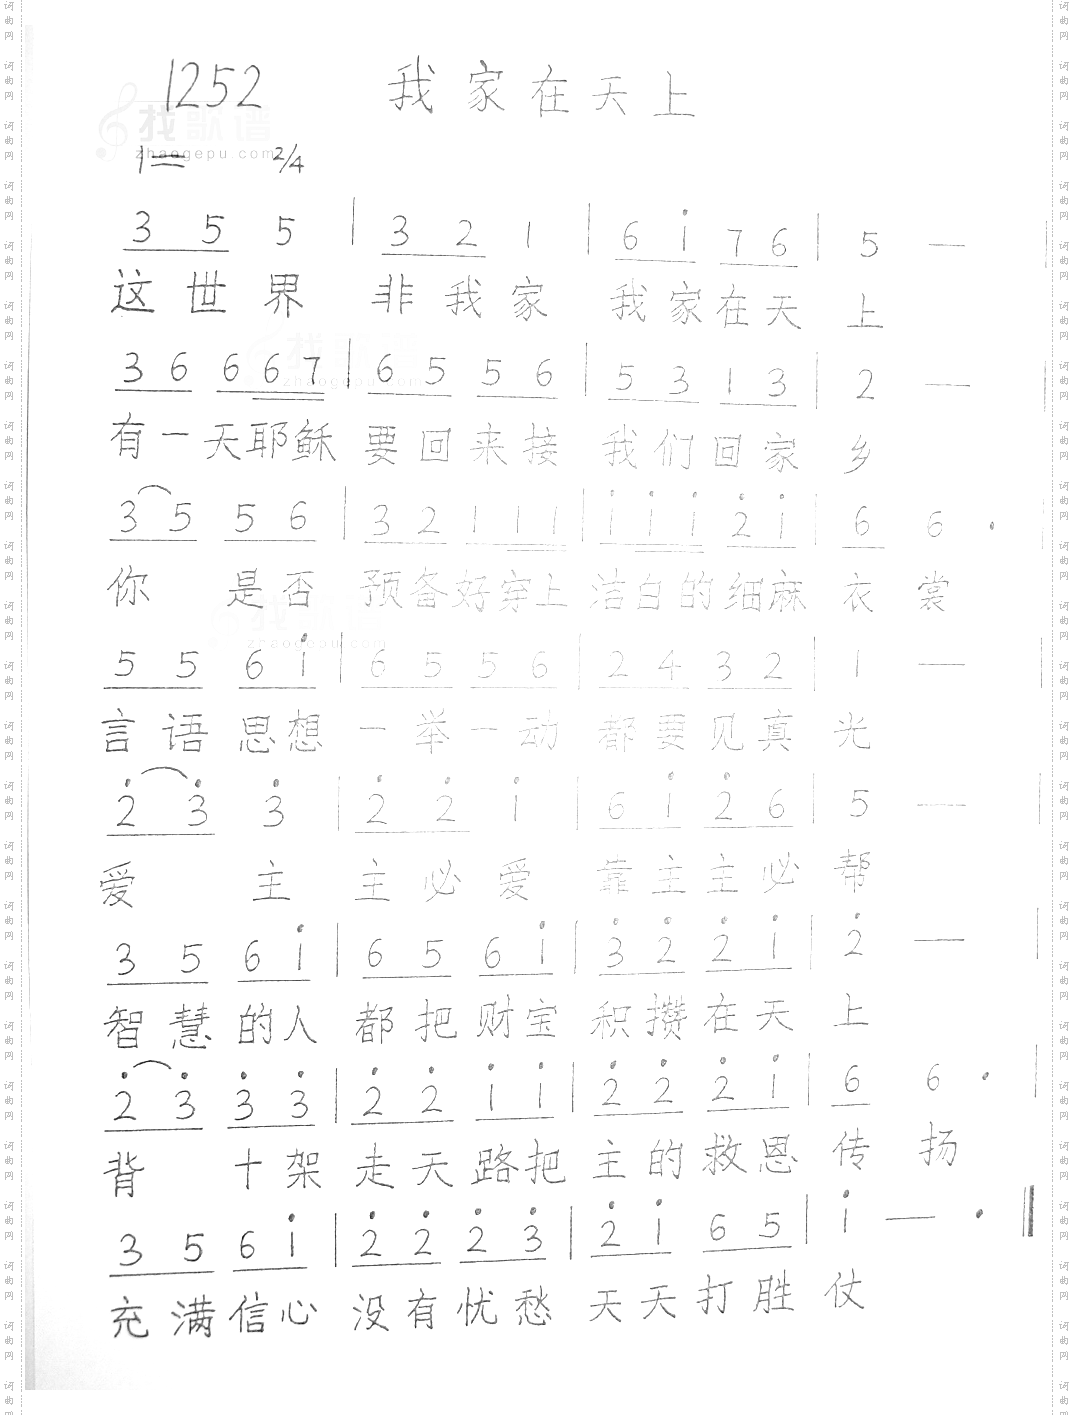 1252 我家在天上
找歌谱
zhaogepu.com
1= 2/4
3 5 5 | 3 2 1 | 6 i 7 6 | 5 — |
这世界 非我家 我家在天上
3 6 6 6 7 | 6 5 5 6 | 5 3 1 3 | 2 — |
有一天耶稣 要回来接 我们回家乡
3 5 5 6 | 3 2 1 1 1 | i i i 2̇ i | 6 6 · |
你是否 预备好穿上 洁白的细麻衣裳
5 5 6 i | 6 5 5 6 | 2 4 3 2 | 1 — |
言语思想 一举一动 都要见真光
2̇ 3̇ 3̇ | 2̇ 2̇ i | 6 i 2̇ 6 | 5 — |
爱主 主必爱 靠主主必帮
3 5 6 i | 6 5 6 i | 3̇ 2̇ 2̇ i | 2̇ — |
智慧的人 都把财宝 积攒在天上
2̇ 3̇ 3̇ 3̇ | 2̇ 2̇ i i | 2̇ 2̇ 2̇ i | 6 6 · |
背十架 走天路把 主的救恩传扬
3 5 6 i | 2̇ 2̇ 2̇ 3̇ | 2̇ i 6 5 | i — ·
充满信心 没有忧愁 天天打胜仗
词曲网